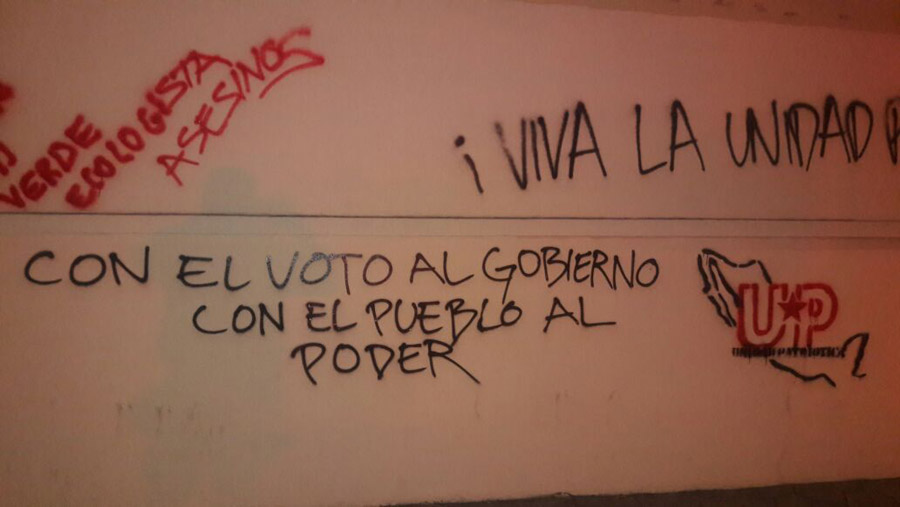 VERDE
ECOLOGISTA
ASESINOS
¡VIVA LA UNIDAD
CON EL VOTO AL GOBIERNO
CON EL PUEBLO AL
PODER
U★P